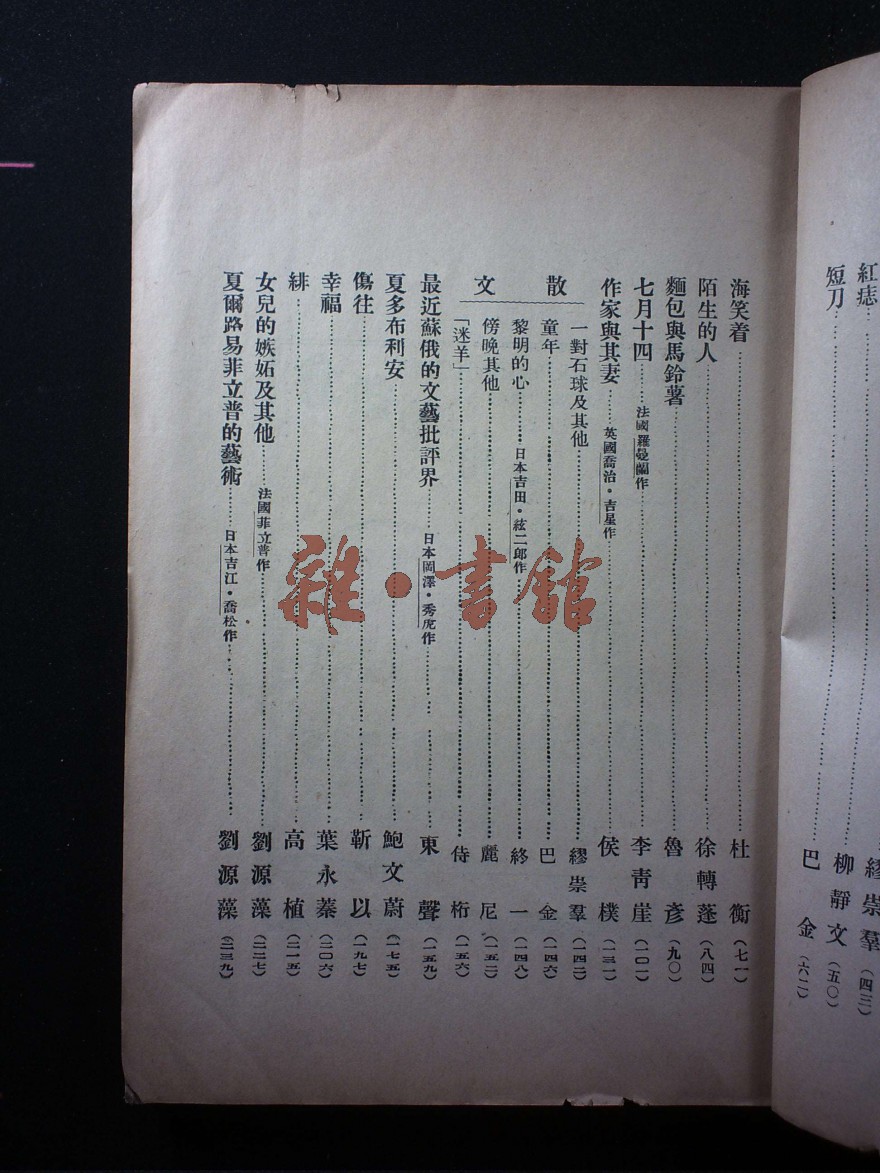 紅痣……繆崇羣(四三)
短刀……柳靜文(五〇)
巴金(六二)
海笑着……杜衡(七一)
陌生的人……徐轉蓬(八四)
麵包與馬鈴薯……魯彥(九〇)
七月十四……法國羅曼蘭作……李青崖(一〇一)
作家與其妻……英國喬治・吉星作……侯樸(一三一)
散文
一對石球及其他……繆崇羣(一四二)
童年……巴金(一四六)
黎明的心……日本吉田・絃二郎作……終一(一四八)
傍晚其他……麗尼(一五二)
「迷羊」……侍桁(一五六)
最近蘇俄的文藝批評界……日本岡澤・秀虎作……東聲(一五九)
夏多布利安……鮑文蔚(一七五)
傷往……靳以(一九七)
幸福……葉永蓁(二〇六)
緋……高植(二一五)
女兒的嫉妬及其他……法國菲立普作……劉源藻(二二七)
夏爾路易菲立普的藝術……日本吉江・喬松作……劉源藻(二三九)
雜・書館